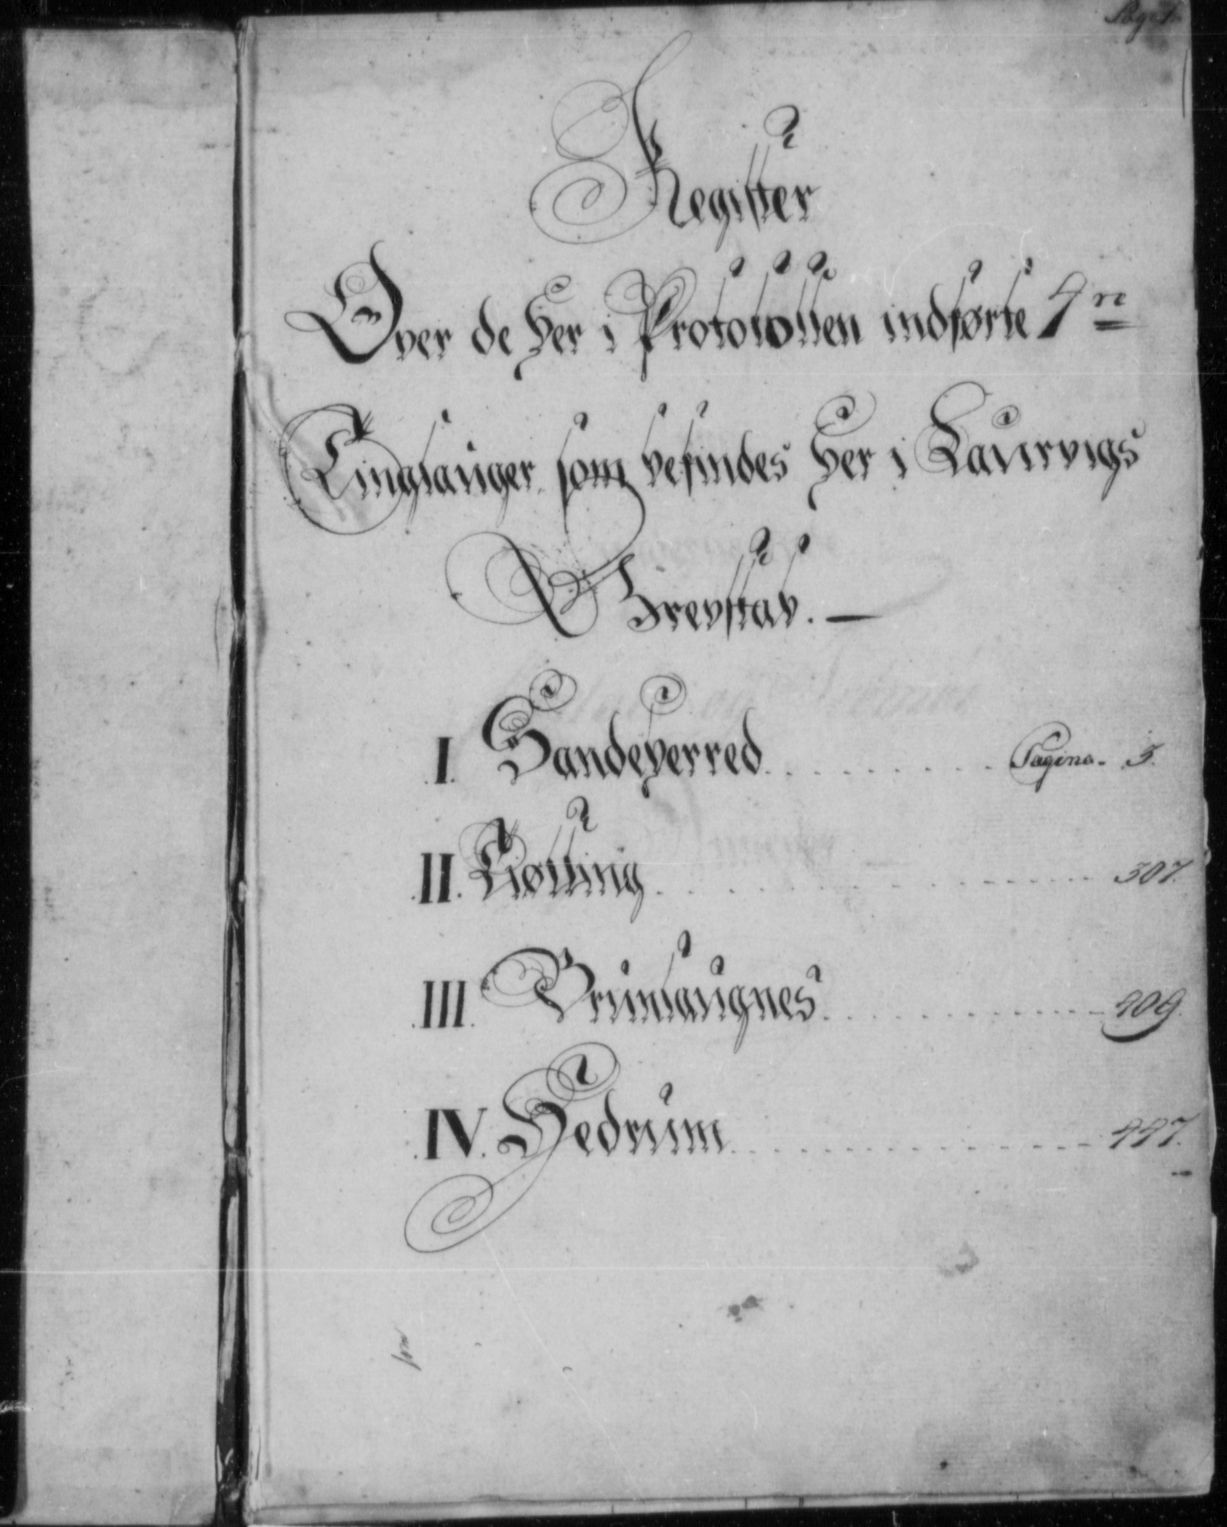 Pag. 1.
Register
Over de her i Protokollen indførte 4re
Tinglauger som befindes her i Laurvigs
Grevskab. —
I. Sandeherred . . . . . . . . . Pagina. 5.
II. Tiølling . . . . . . . . . 307.
III. Brunlaugnes . . . . . . . . . 409.
IV. Hedrum . . . . . . . . . 447.